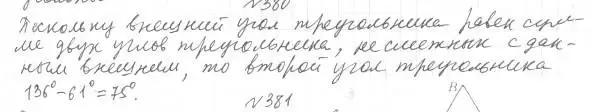 N380
Поскольку внешний угол треугольника равен сум-
ме двух углов треугольника, не смежных с дан-
ным внешнем, то второй угол треугольника
136°-61°=75°.
N381
B